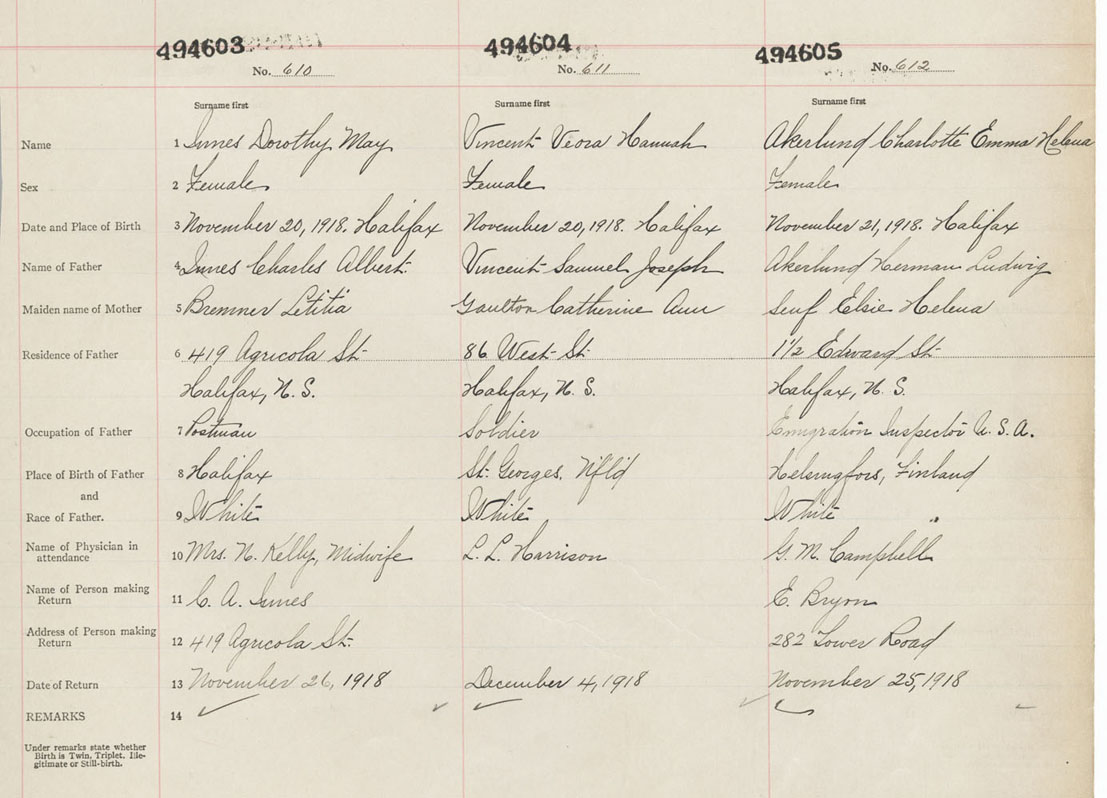 494603 494604 494605
No. 610 No. 611 No. 612
Surname first Surname first Surname first
Name 1 Innes Dorothy May Vincent Veora Hannah Akerlund Charlotte Emma Helena
Sex 2 Female Female Female
Date and Place of Birth 3 November 20, 1918. Halifax November 20, 1918. Halifax November 21, 1918. Halifax
Name of Father 4 Innes Charles Albert Vincent Samuel Joseph Akerlund Herman Ludwig
Maiden name of Mother 5 Bremner Letitia Gaulton Catherine Ann Elsie Helena
Residence of Father 6 419 Agricola St. 86 West St. 1½ Edward St.
Halifax, N. S. Halifax, N. S. Halifax, N. S.
Occupation of Father 7 Postman Soldier Emigration Inspector U. S. A.
Place of Birth of Father 8 Halifax St. Georges, Nfld Helsingfors, Finland
and
Race of Father. 9 White White White
Name of Physician in
attendance 10 Mrs. N. Kelly, Midwife L. L. Harrison G. M. Campbell
Name of Person making
Return 11 C. A. Innes E. Bryon
Address of Person making
Return 12 419 Agricola St. 282 Tower Road
Date of Return 13 November 26, 1918 December 4, 1918 November 25, 1918
REMARKS 14
Under remarks state whether
Birth is Twin, Triplet. Ille-
gitimate or Still-birth.